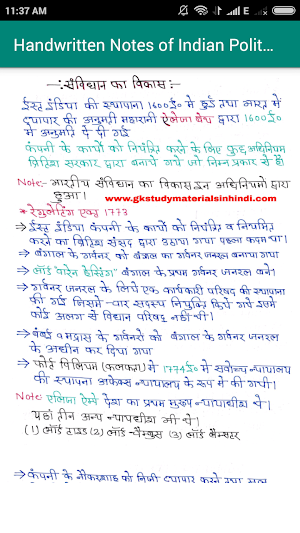 11:37 AM
83
Handwritten Notes of Indian Polit...
—: संविधान का विकास :—
ईस्ट इंडिया की स्थापना 1600 ई० में हुई तथा भारत में
व्यापार की अनुमति महारानी ऐलिजा बेथ द्वारा 1600 ई०
में अनुमति दे दी गई
कंपनी के कार्यो को नियंत्रित करने के लिए कुछ अधिनियम
ब्रिटिश सरकार द्वारा बनाये गये जो निम्न प्रकार से है।
Note:- भारतीय संविधान का विकास इन अधिनियमो द्वारा
हुआ।
www.gkstudymaterialsinhindi.com
* रेगुलेटिंग एक्ट 1773
→ ईस्ट इंडिया कंपनी के कार्यो को नियंत्रित व नियमित
करने का ब्रिटिश संसद द्वारा उठाया गया पहला कदम था।
→ बंगाल के गर्वनर को बंगाल का गर्वनर जनरल बनाया गया
→ लॉर्ड वारेन हेस्टिंग बंगाल के प्रथम गर्वनर जनरल बने।
→ गर्वनर जनरल के लिये एक कार्यकारी परिषद की स्थापना
की गई जिसमे चार सदस्य नियुक्ति किये गये इसमे
कोई अलग से विधान परिषद नही थी।
→ बंबई व मद्रास के गर्वनरो को बंगाल के गर्वनर जनरल
के अधीन कर दिया गया
→ फोर्ट विलियम (कलकत्ता) में 1774 ई० में सर्वोच्च न्यायालय
की स्थापना न्यायालय के रूप में की गयी।
Note: एलिजा इम्पे देश का प्रथम मुख्य न्यायाधीश थे।
यहां तीन अन्य न्यायधीश भी थे।
(1) लॉर्ड हाइड (2) लॉर्ड चैम्बर्स (3) लॉर्ड
→ कंपनी के नौकरशाह को निजी व्यापार करने तथा